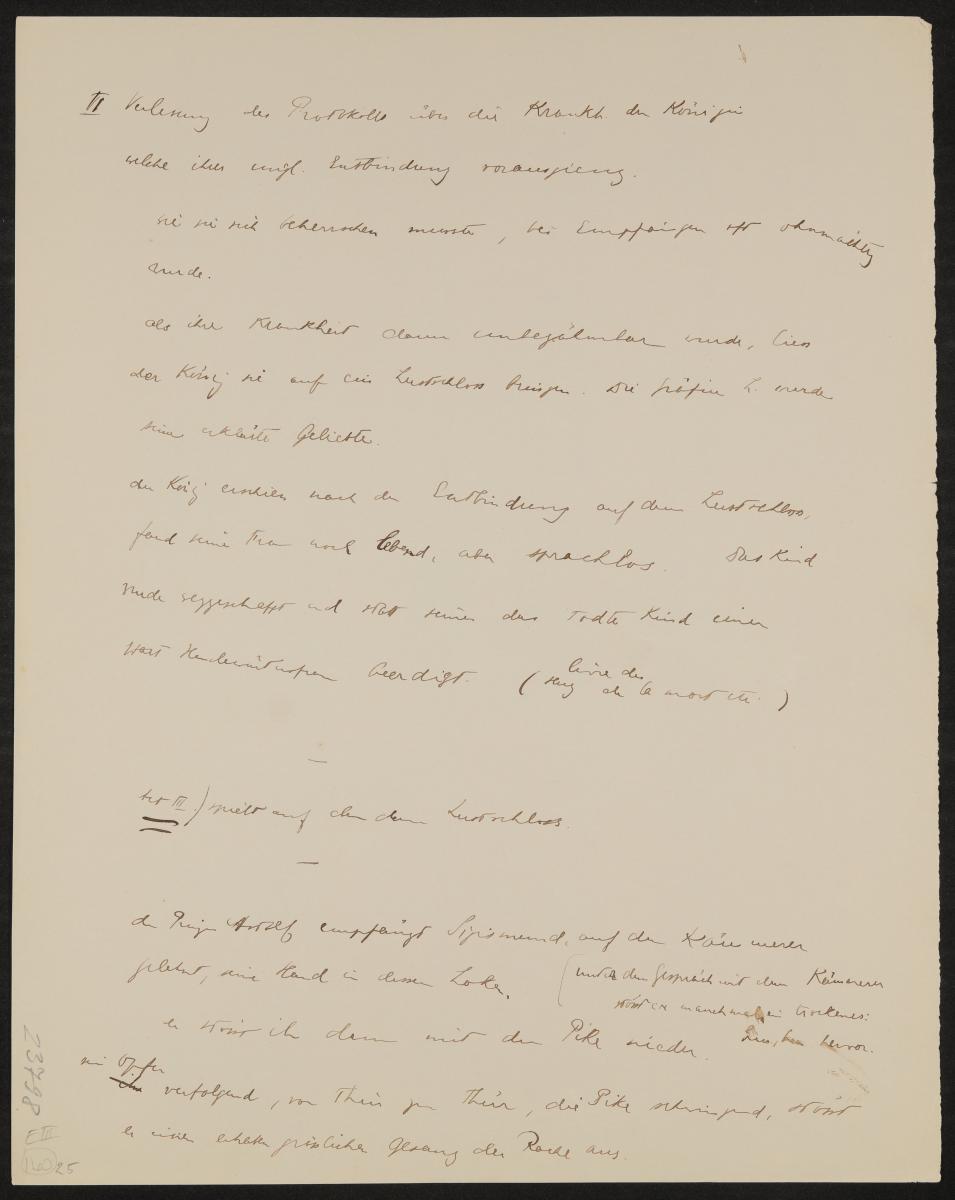 II Verlesung des Protokolls über die Krankh. der Königin
welche ihrer Entbindung vorausgieng.
wie sie sich beherrschen musste, bei Empfängen oft ohnmächtig
wurde.
als ihre Krankheit dann unbezähmbar wurde, liess
der König sie auf ein Lustschloss bringen. Die Gräfin L. wurde
seine erklärte Geliebte.
der König erschien nach der Entbindung auf dem Lustschloss,
fand seine Frau noch lebend, aber sprachlos. Das Kind
wurde weggeschafft und statt seiner das todte Kind einer
beerdigt. (livre du
de la mort etc.)
—
Act III.) spielt auf dem Lustschloss.
—
der Prinz empfängt Sigismund, auf den Kämmerer
gelehnt, eine Hand in dessen Locken.
(unter dem Gespräch mit dem Kämmerer
stösst er manchmal ein trockenes:
hervor.
er stösst ihn dann mit der Pike nieder.
sein Opfer
verfolgend, von Thür zu Thür, die Pike schwingend, stösst
er einen grässlichen Gesang der Rache aus.
23798
E III
25